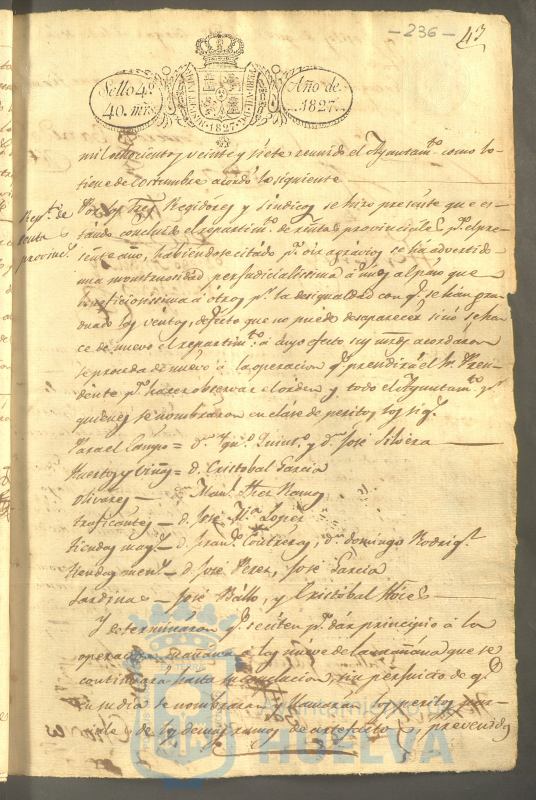 - 236 - 47
Sello 4º
40. mrs
Año de
1827.
HISPANIARUM REX 1827
mil ochocientos veinte y siete reunido el Ayuntamto. como lo
tiene de costumbre acordó lo siguiente
Repto. de
renta
provincs.
Por los Sres. Regidores y Sindicos se hizo presente que es-
tando concluido el repartimto. de rentas provinciales pa. el pre-
sente año, habiendose citado pa. oir agravios se ha advertido
una monstruosidad perjudicialisima á unos al paso que
beneficiosisima á otros pr. la desigualdad con qe. se han gra-
duado los vientos, defecto que no puede desaparecer sinó se ha-
ce de nuevo el repartimto. á cuyo efecto sus mrds. acordaron
se proceda de nuevo á la operacion qe. presidirá el Sr. Presi-
dente pa. hacer observar el órden y todo el Ayuntamto. pr.
quienes se nombraron en clase de peritos los sigs.
Para el Campo = dn. Igno. Quinto. y dn. José Silvera
Huertos y Viñas = d. Cristobal Garcia
Olivares - Manl.
traficantes - d. José Ma. Lopez
tiendas mays. - d. Franco. Contreras, dn. domingo Rodrigz.
tiendas mens. - d. José Perez, José Garcia
Sardina - José Ballo, y Cristobal
Y determinaron qe. se citen pa. dar principio á la
operacion mañana á las nueve de la mañana que se
continuará hasta su conclusion, sin perjuicio de qe.
en su dia se nombraran y llamaran los peritos par-
ciales de los demas ramos de artefactos, prevenidos
Ayuntamiento de
HUELVA